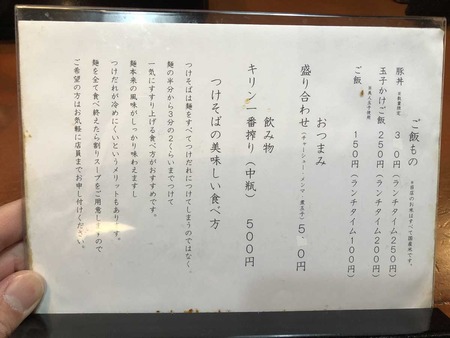 ご飯もの ※当店のお米はすべて国産米です。
豚丼 ※数量限定 3 0円(ランチタイム250円)
玉子かけご飯 ※奥久慈玉子使用 250円(ランチタイム200円)
ご飯 150円(ランチタイム100円)
おつまみ
盛り合わせ(チャーシュー・メンマ・煮玉子)5 0円
飲み物
キリン一番搾り(中瓶) 500円
つけそばの美味しい食べ方
つけそばは麺をすべてつけだれにつけてしまうのではなく、
麺の半分から3分の2くらいまでつけて
一気にすすり上げる食べ方がおすすめです。
麺本来の風味がしっかり味わえますし
つけだれが冷めにくいというメリットもあります。
麺を全て食べ終えたら割りスープをご用意しますので
ご希望の方はお気軽に店員までお申し付けください。